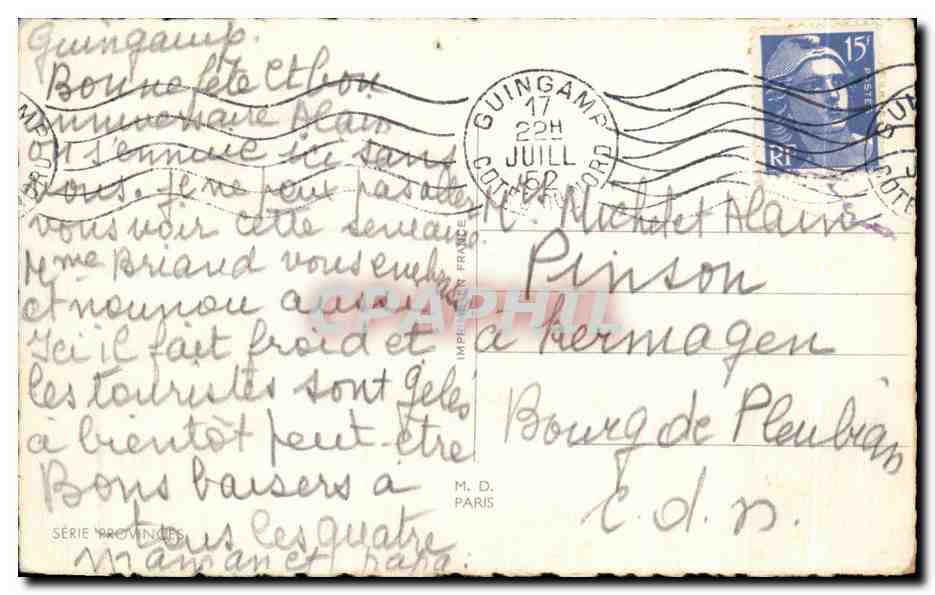 Guingamp.
Bonne fête et bon
anniversaire Alain
on s'ennuie ici sans
vous. je ne peux pas aller
vous voir cette semaine.
Mme Briand vous embrasse
et nounou aussi
Ici il fait froid et
les touristes sont gelés
à bientôt peut être
Bons baisers à
tous les quatre
Maman et papa.
SÉRIE PROVINCES
M. D.
PARIS
IMPRIMÉ EN FRANCE
GUINGAMP
17
22H
JUILL
52
COTES DU NORD
15F
POSTES
RF
Mrs. Michel et Alain
Pinson
à Kermagen
Bourg de Pleubian
C.d.n.
CPAPHIL